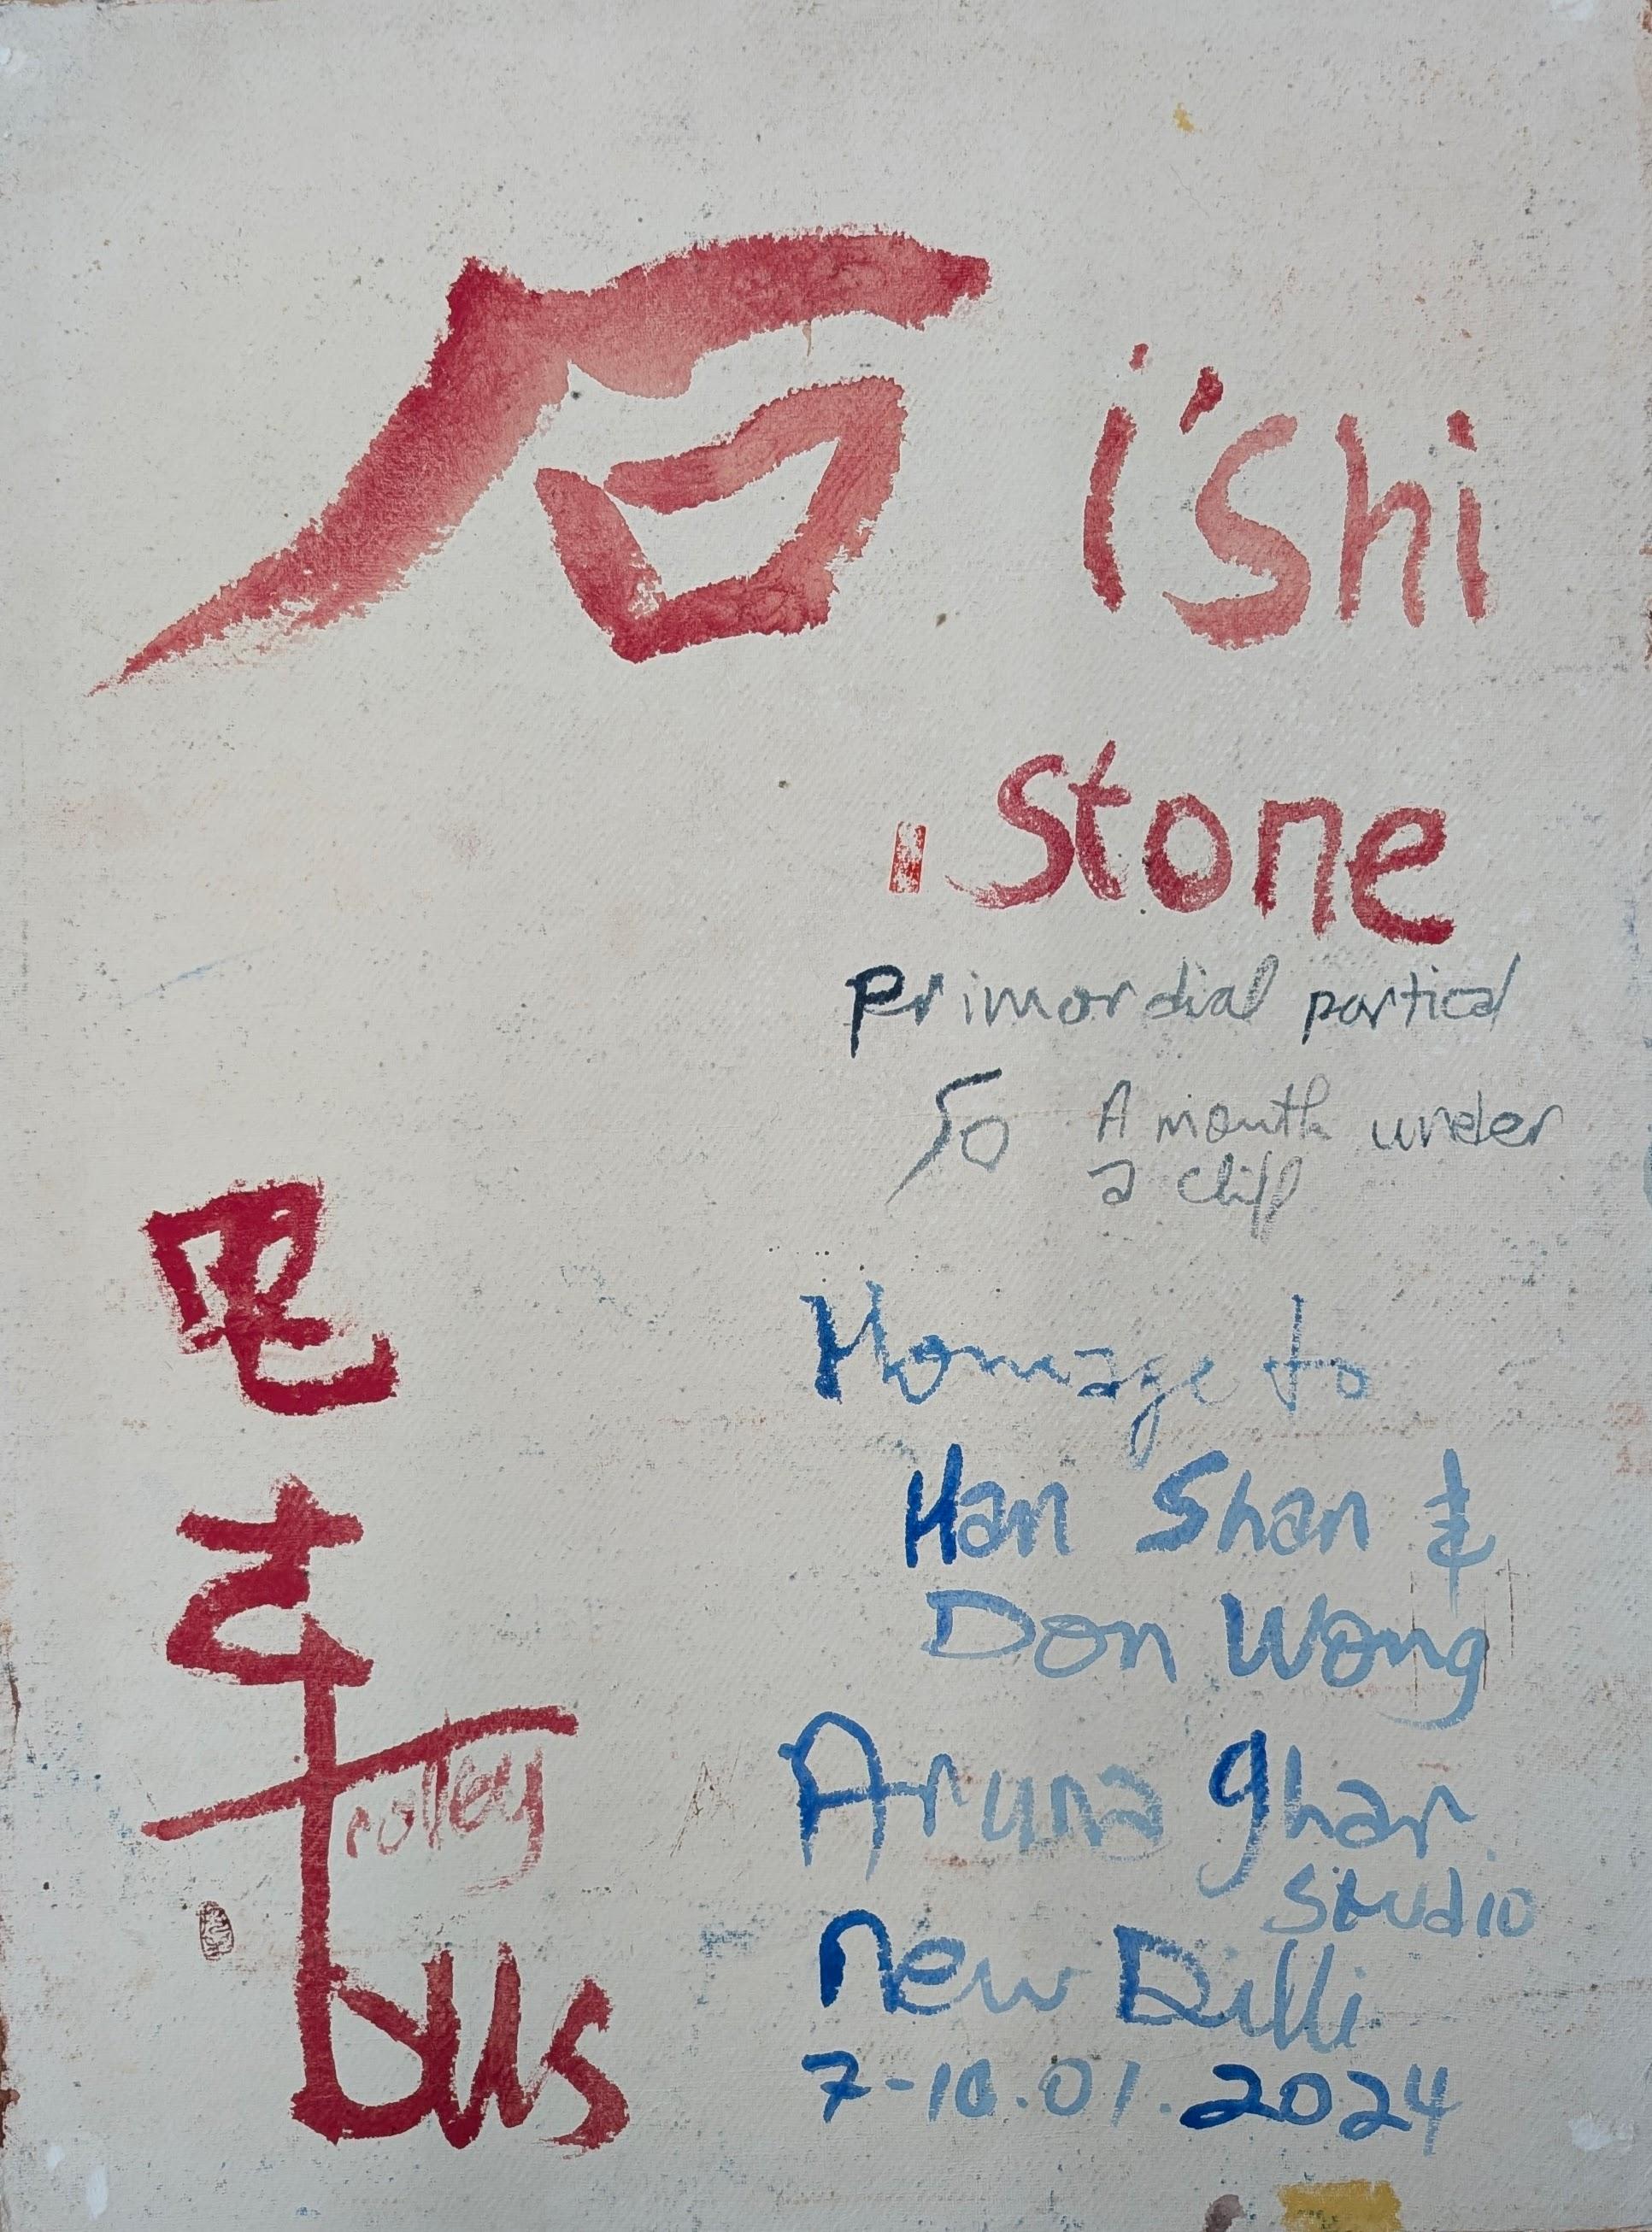 石 i'shi
stone
Primordial partical
石 A mouth under
a cliff
Homage to
Han Shan &
Don Wong
Aruna ghar
studio
New Dilli
7-10.01.2024
电车
Trolley
bus